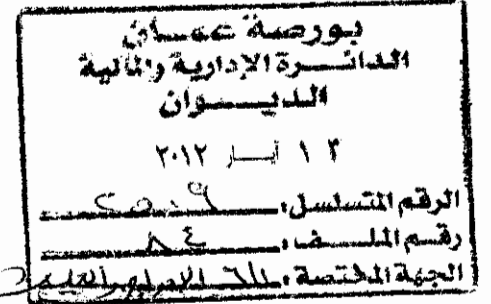 بورصة عمان
الدائرة الإدارية والمالية
الديوان
١٣ أيار ٢٠١٢
الرقم المتسلسل:
رقم الملف: ٨٤
الجهة المختصة: